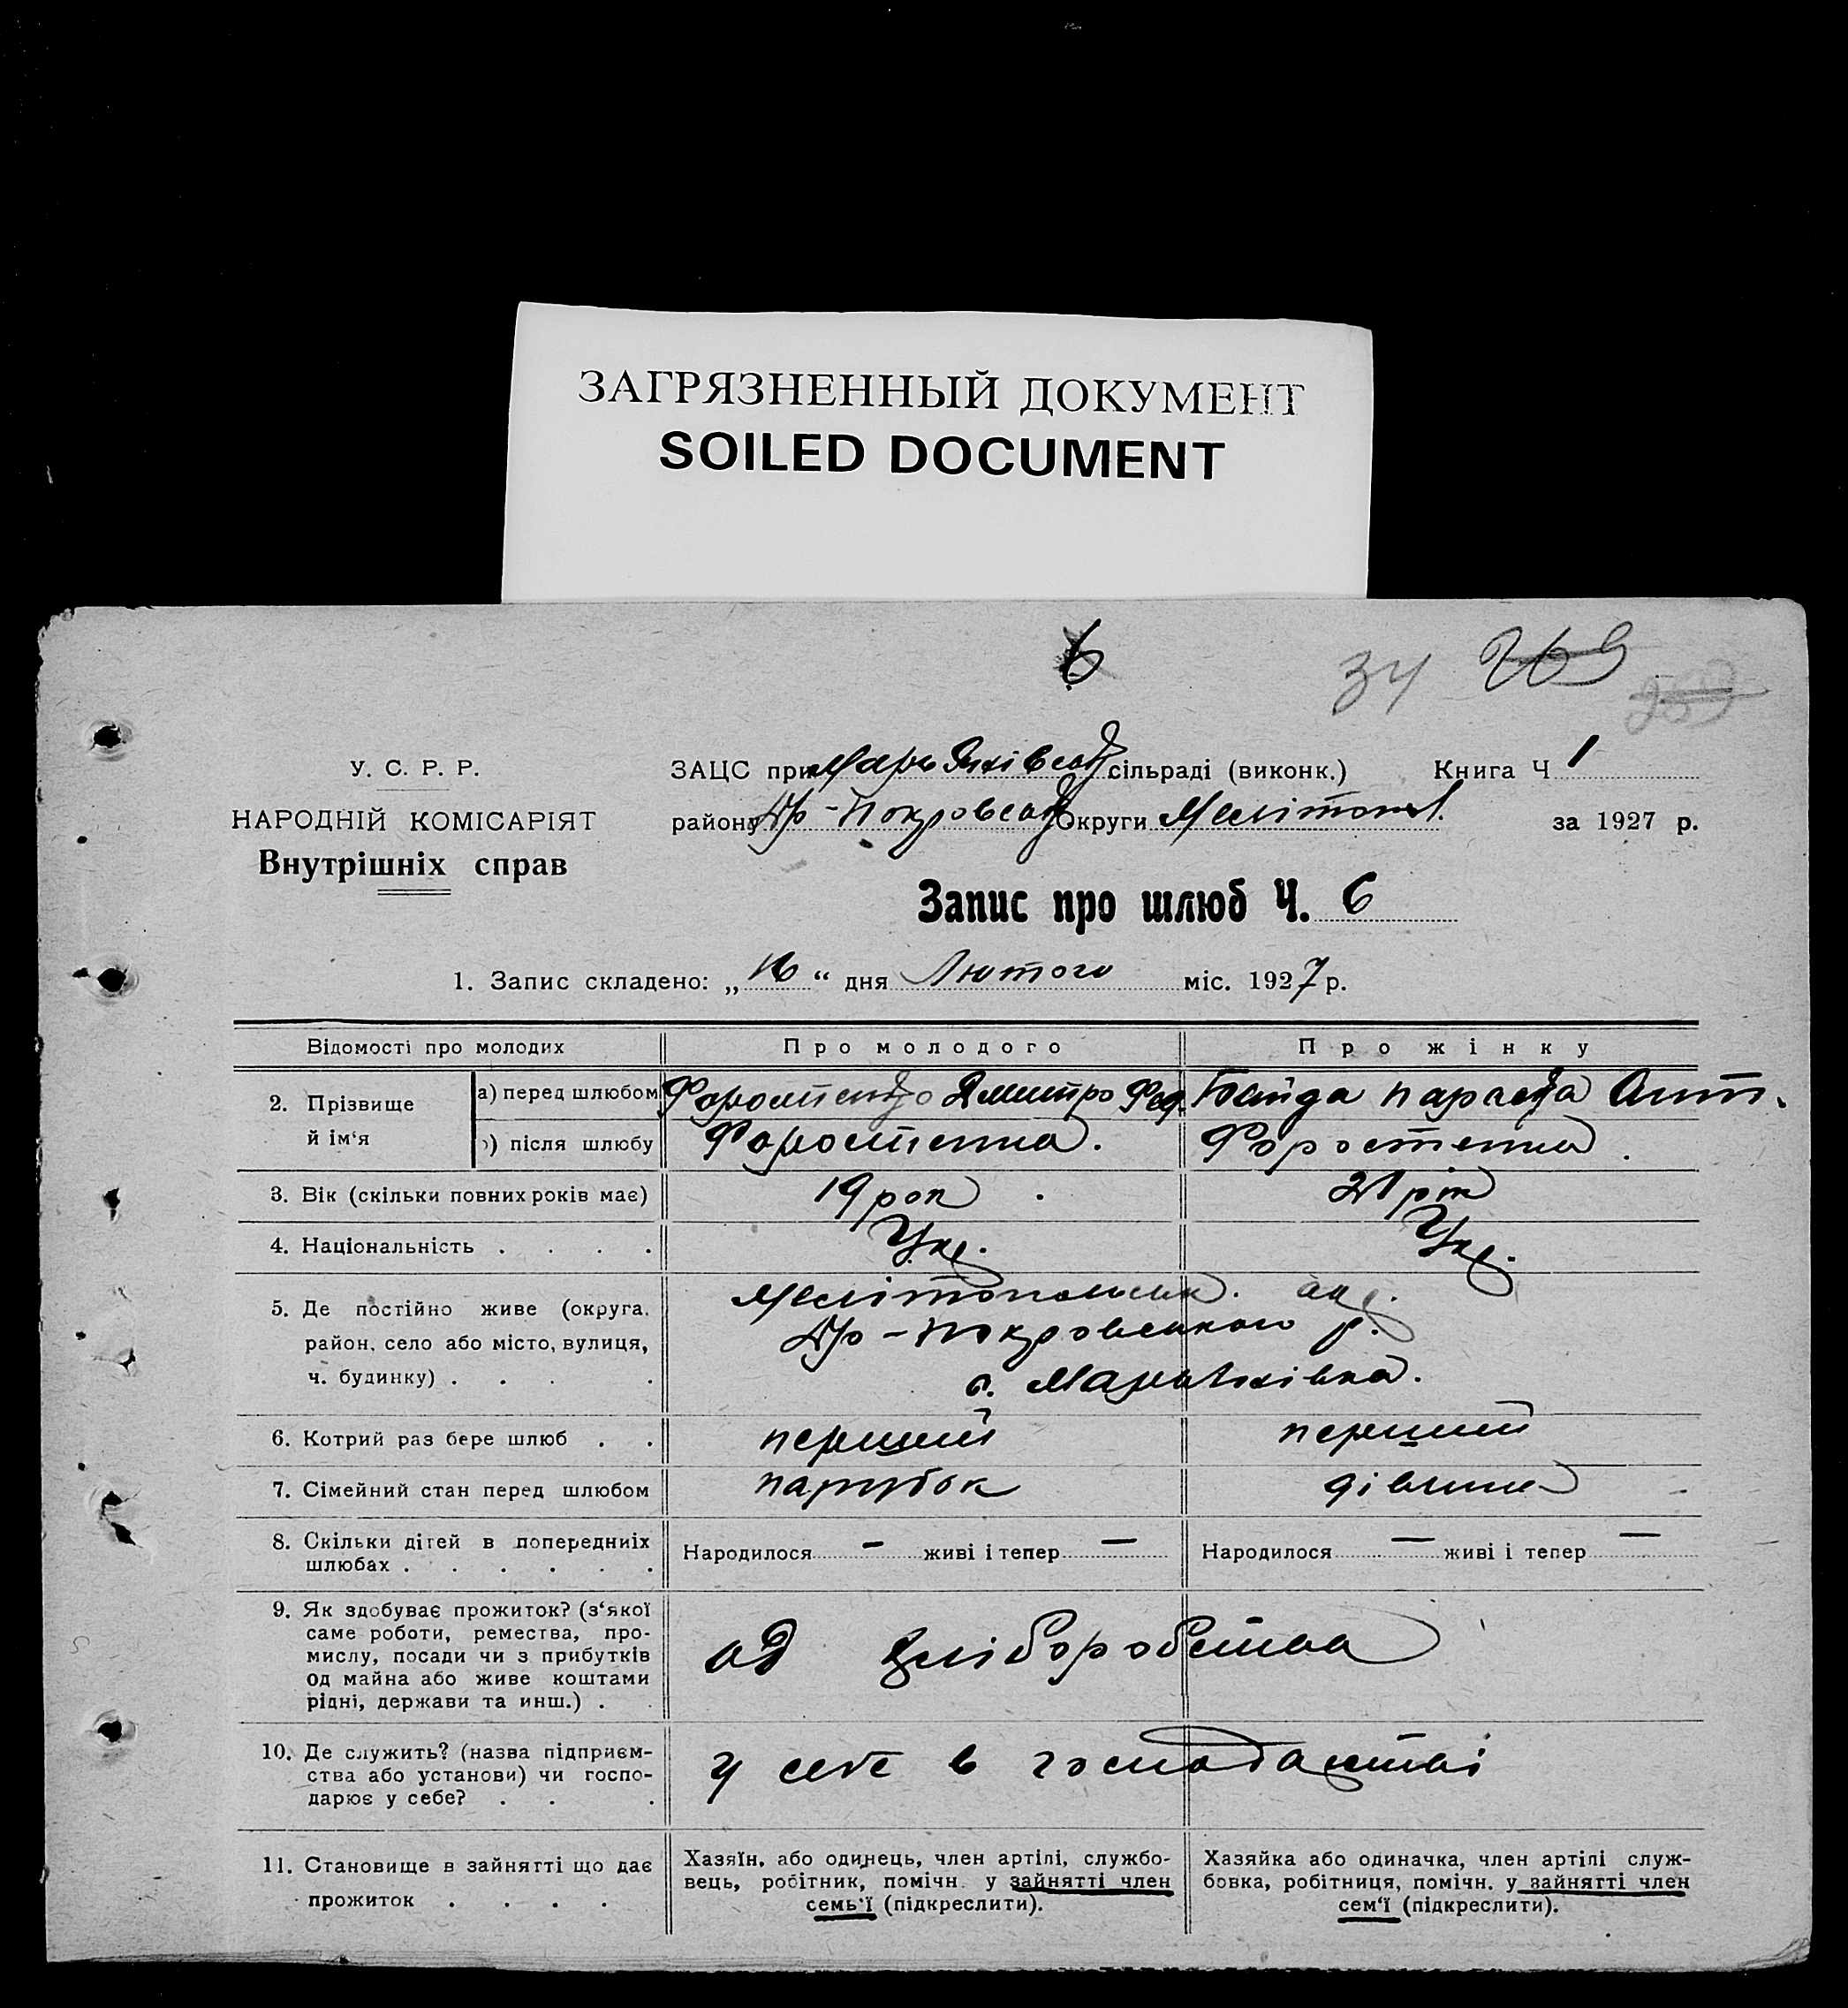 ЗАГРЯЗНЕННЫЙ ДОКУМЕНТ
SOILED DOCUMENT
6
34 269
У. С. Р. Р.
НАРОДНІЙ КОМІСАРІЯТ
Внутрішніх справ
ЗАЦС при сільраді (виконк.) Книга Ч 1
району Округи за 1927 р.
Запис про шлюб Ч. 6
1. Запис складено: „16“ дня Лютого міс. 1927 р.
Відомості про молодих Про молодого Про жінку
2. Прізвище й ім‘я
а) перед шлюбом Форостенко Дмитро Фед. Байда Параска Ант.
б) після шлюбу Форостенко. Форостенко.
3. Вік (скільки повних років має) 19 рок. 21 рік
4. Національність . . . . Укр. Укр.
5. Де постійно живе (округа, район, село або місто, вулиця, ч. будинку) . . . .
Мелітопольськ. окр.
-Покровського р.
с. Мар'янівка.
6. Котрий раз бере шлюб . . перший перший
7. Сімейний стан перед шлюбом парубок дівчина
8. Скільки дітей в попередніх шлюбах . . . . . .
Народилося — живі і тепер — Народилося — живі і тепер —
9. Як здобуває прожиток? (з‘якої
саме роботи, ремества, про-
мислу, посади чи з прибутків
од майна або живе коштами
рідні, держави та инш.) . .
од хліборобства
10. Де служить? (назва підприєм-
ства або установи) чи госпо-
дарює у себе? . . .
у себе в господарстві
11. Становище в зайнятті що дає
прожиток . . . .
Хазяїн, або одинець, член артілі, службо-
вець, робітник, помічн. у зайнятті член
семь‘ї (підкреслити).
Хазяйка або одиначка, член артілі служ-
бовка, робітниця, помічн. у зайнятті член
сем‘ї (підкреслити).